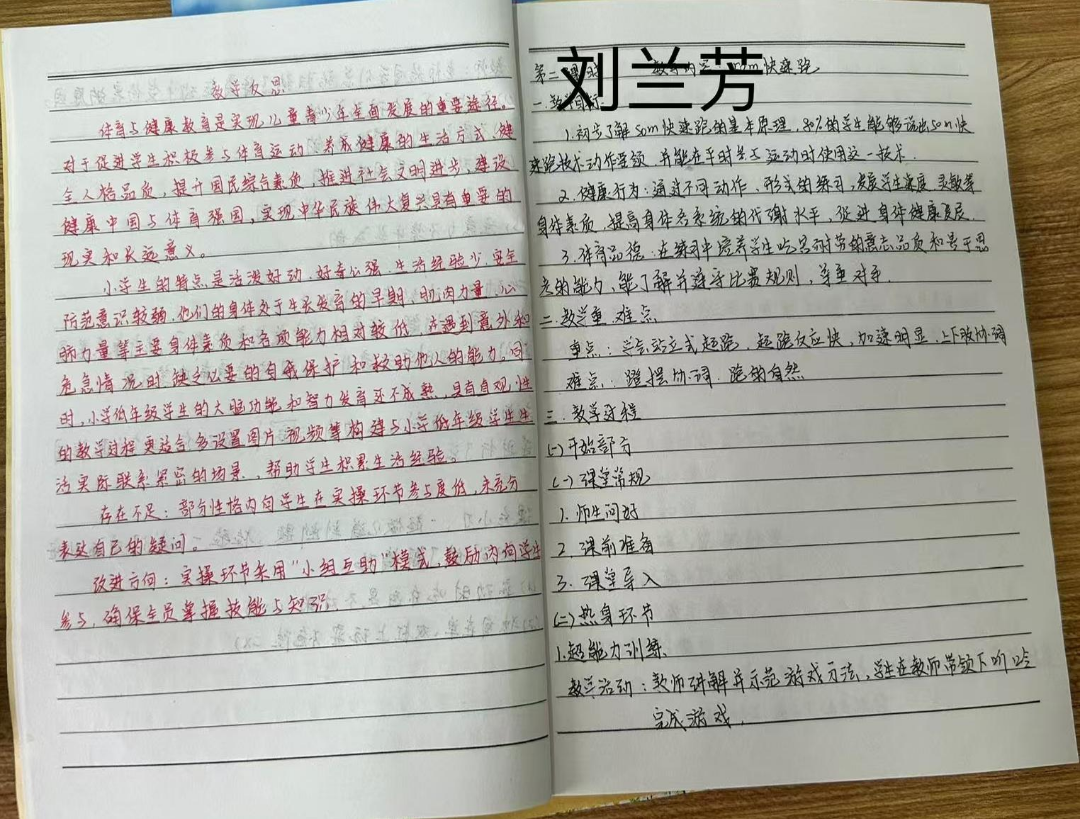 教学反思
体育与健康教育是实现儿童青少年全面发展的重要途径。
对于促进学生积极参与体育运动 养成健康的生活方式 健
全人格品质，提升国民综合素质，推进社会文明进步，建设
健康中国与体育强国，实现中华民族伟大复兴具有重要的
现实和长远意义。
小学生的特点是活泼好动，好奇心强，生活经验少，安全
防范意识较弱，他们的身体处于生长发育的早期，肌肉力量、心
肺力量等主要身体素质和各项能力相对较低，在遇到意外和
危急情况时缺乏必要的自我保护和救助他人的能力。同
时，小学低年级学生的大脑功能和智力发育还不成熟，具有直观性
的教学过程更适合多设置图片 视频等构建与小学低年级学生生
活实际联系紧密的场景，帮助学生积累生活经验。
存在不足：部分性格内向学生在实操环节参与度低，未充分
表达自己的疑问。
改进方向：实操环节采用“小组互助”模式，鼓励内向学生
参与，确保全员掌握技能与知识。
刘兰芳
第二 教学内容：50m快速跑
一.教
1.初步了解50m快速跑的基本原理，80%的学生能够说出50m快
速跑技术动作要领 并能在平时参与运动时使用这一技术.
2.健康行为：通过不同动作、形式的练习，发展学生速度 灵敏等
身体素质，提高身体各系统的代谢水平，促进身体健康发展.
3.体育品德：在练习中培养学生吃苦耐劳的意志品质和善于思
考的能力，能了解并遵守比赛规则，尊重对手.
二.教学重、难点
重点：学会站立式起跑，起跑反应快，加速明显，上下肢协调
难点：蹬摆协调，跑的自然
三.教学过程
(一)开始部分
(一)课堂常规
1.师生问好
2.课前准备
3.课堂导入
(二)热身环节
1.超能力训练
教学活动：教师讲解并示范游戏方法，学生在教师带领下听口令
完成游戏.